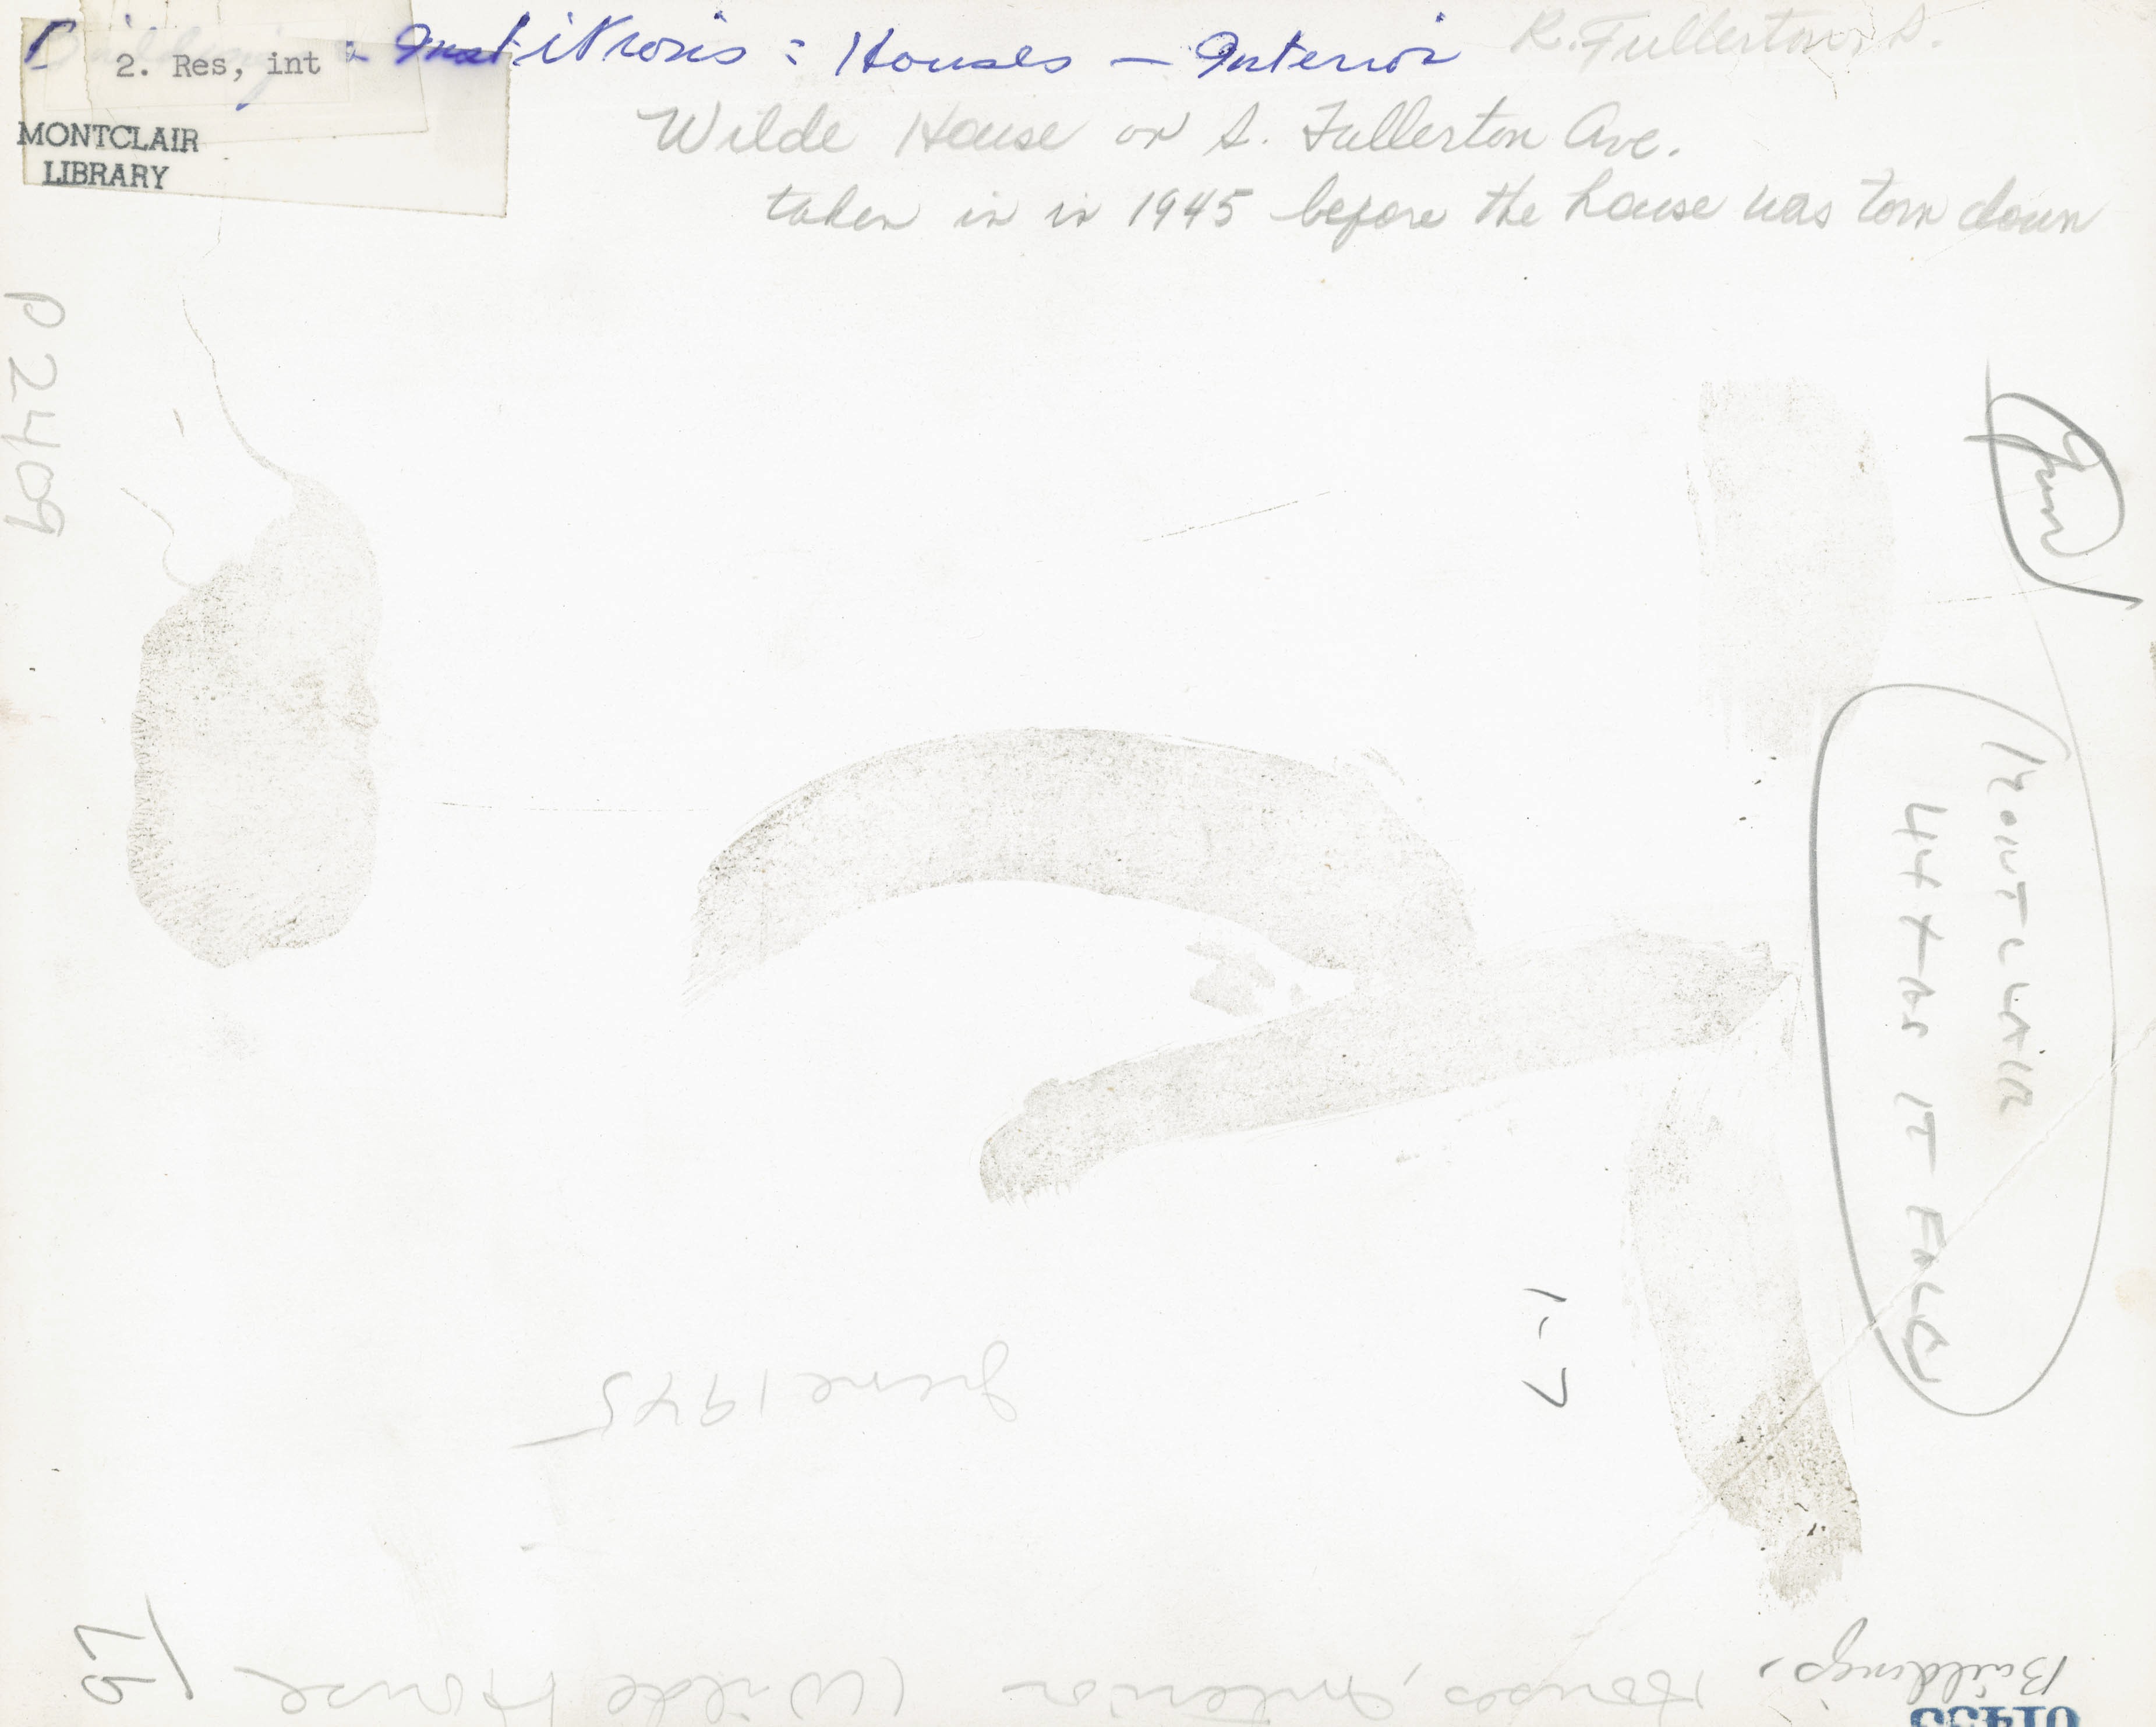 2. Res, int : Institutions : Houses - Interior R. Fullerton, S.
MONTCLAIR
LIBRARY
Wilde House on S. Fullerton Ave.
taken in in 1945 before the house was torn down
P 2409
MONTCLAIR
44 x As IT
June 1945
Buildings,
Houses, Interior (Wilde House